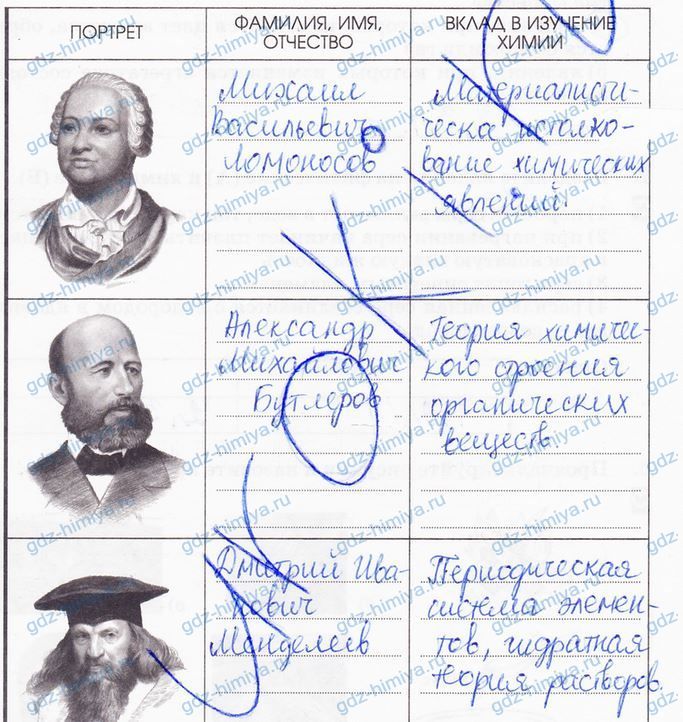 ПОРТРЕТ
ФАМИЛИЯ, ИМЯ,
ОТЧЕСТВО
ВКЛАД В ИЗУЧЕНИЕ
ХИМИИ
Михаил
Васильевич
Ломоносов
Материалисти-
ческа истолко-
вание химических
явлений.
Александр
Михайлович
Бутлеров
Теория химиче-
кого строения
органических
веществ.
Дмитрий Ива-
нович
Менделеев
Периодическая
система элемен-
тов, гидратная
теория растворов.
gdz-himiya.ru